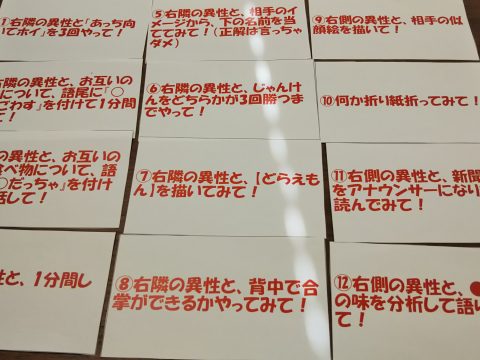 ①右隣の異性と「あっち向
いてホイ」を3回やって！
お互いの
について、語尾に「○
ごわす」を付けて1分間
て！
性と、お互いの
べ物について、語
○だっちゃ」を付け
話して！
性と、1分間し
⑤右隣の異性と、相手のイ
メージから、下の名前を当
ててみて！（正解は言っちゃ
ダメ）
⑥右隣の異性と、じゃんけ
んをどちらかが3回勝つま
でやって！
⑦右隣の異性と、【どらえも
ん】を描いてみて！
⑧右隣の異性と、背中で合
掌ができるかやってみて！
⑨右側の異性と、相手の似
顔絵を描いて！
⑩何か折り紙折ってみて！
⑪右側の異性と、新聞
をアナウンサーになり
読んでみて！
⑫右側の異性と、●
の味を分析して語
て！